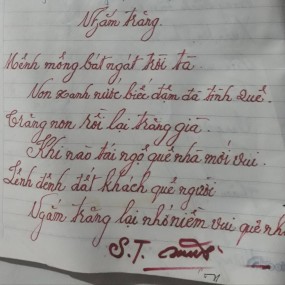 Ngắm trăng.
Mênh mông bát ngát trời ta
Non xanh nước biếc đậm đà tình quê.
Trăng non rồi lại trăng già.
Khi nào tái ngộ quê nhà mới vui.
Lênh đênh đất khách quê người
Ngắm trăng lại nhớ niềm vui quê nh
S.T.